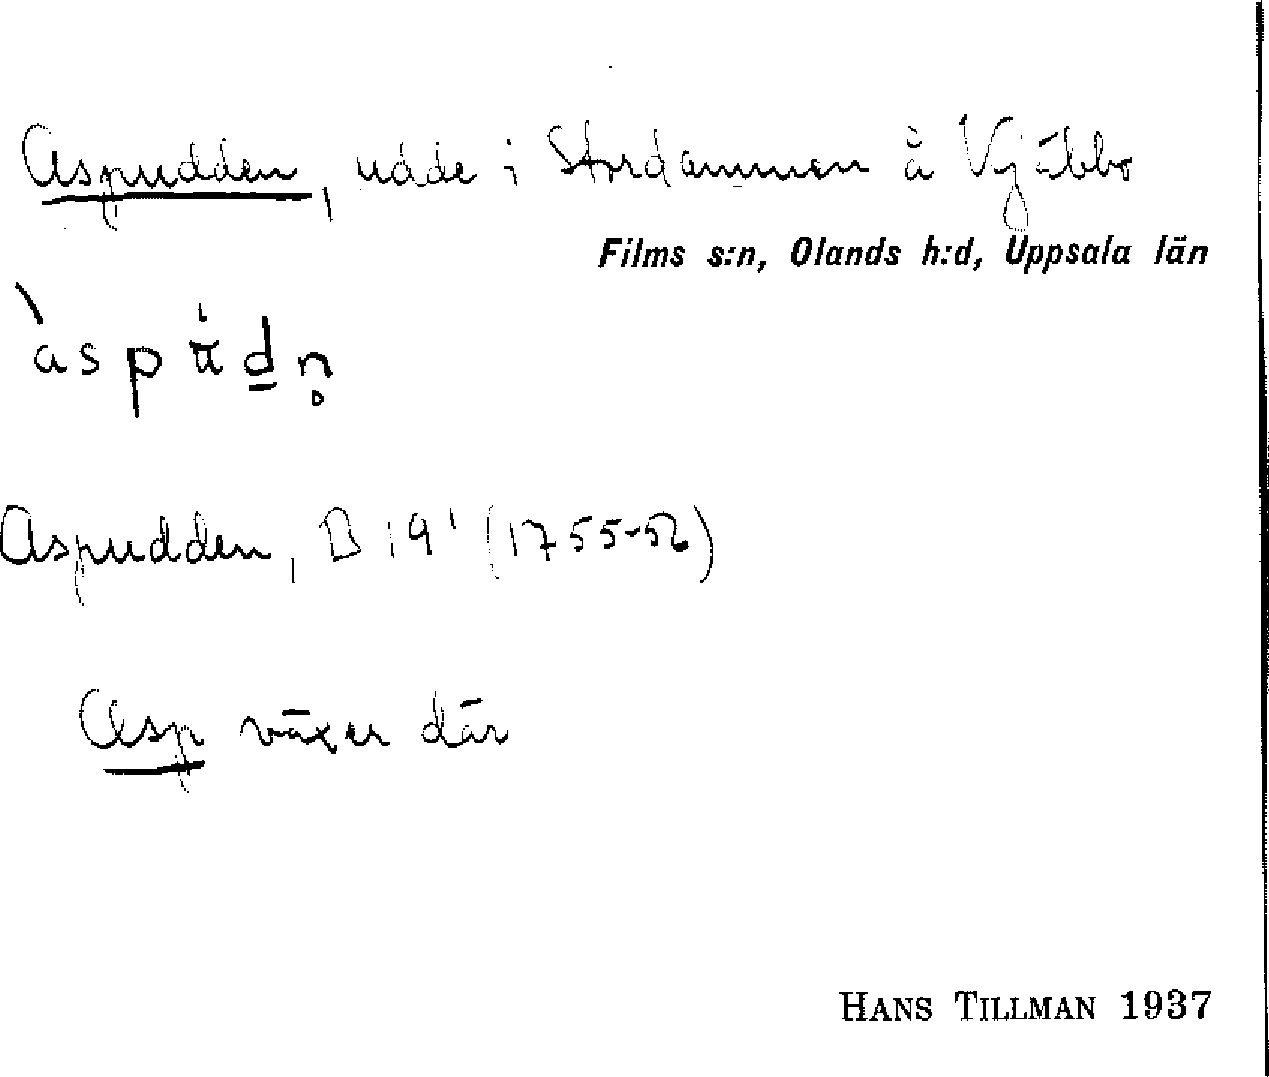 Aspudden, udde i Stordammen å Vigäbbo
Films s:n, Olands h:d, Uppsala län
àspu̇d̲n̥
Aspudden, B 19¹ (1755-56)
Asp växer där
HANS TILLMAN 1937